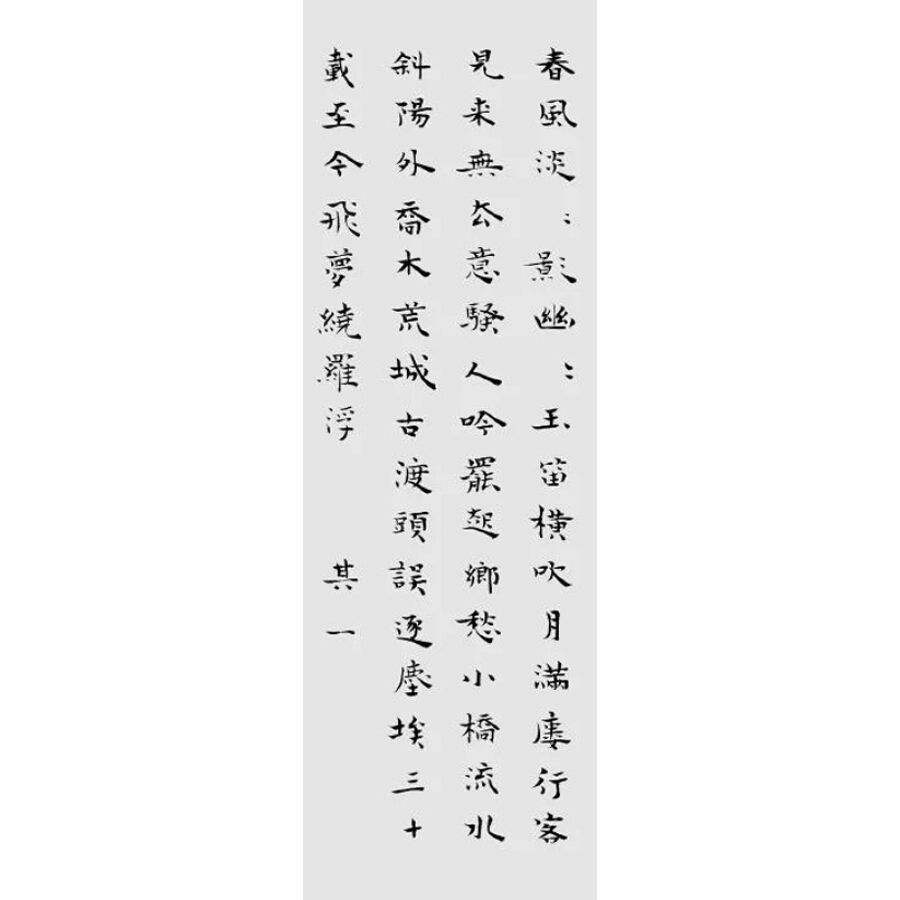 春風淡〻影幽〻玉笛橫吹月滿廔行客
見来無厺意騷人吟罷起鄉愁小橋流水
斜陽外喬木荒城古渡頭誤逐塵埃三十
載至今飛夢繞羅浮 其一